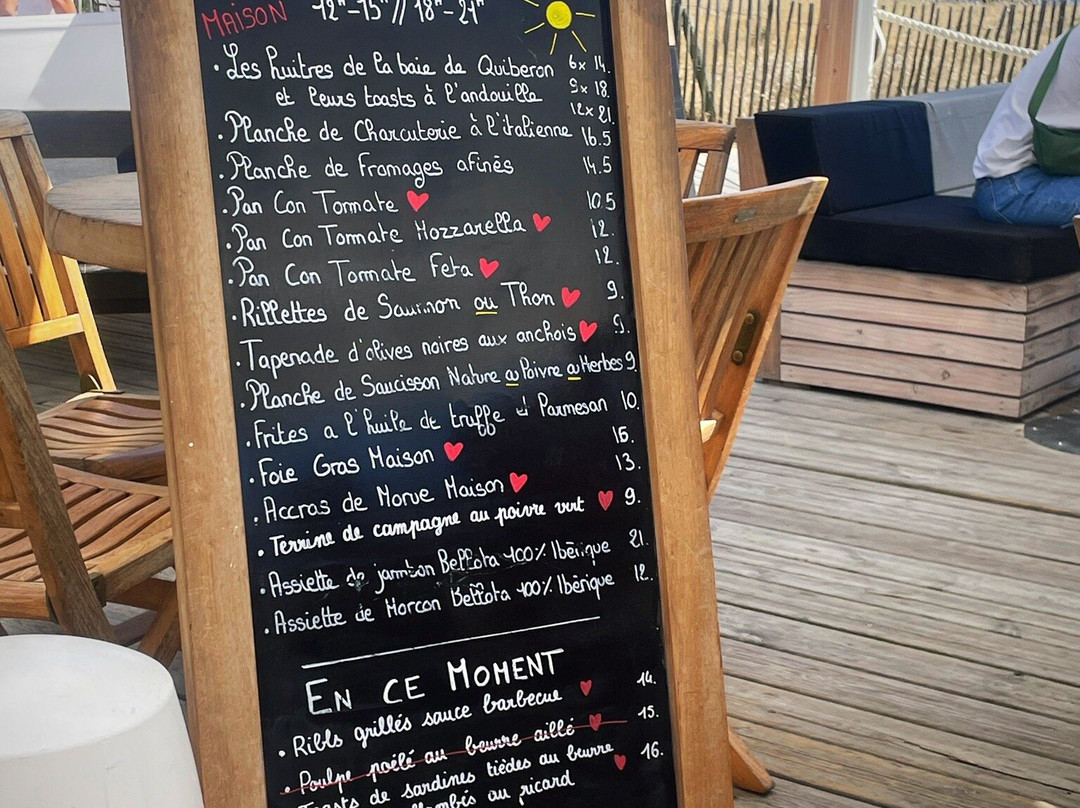 MAISON 12H-15H // 18H-21H
• Les huitres de la baie de Quiberon 6x 14.
et leurs toasts à l'andouille 9x 18.
12x 21.
• Planche de Charcuterie à l'italienne 16.5
• Planche de Fromages afinés 14.5
• Pan Con Tomate 10.5
• Pan Con Tomate Mozzarella 12.
• Pan Con Tomate Feta 12.
• Rillettes de Saumon ou Thon 9.
• Tapenade d'olives noires aux anchois 9.
• Planche de Saucisson Nature ou Poivre ou Herbes 9
• Frites a l'huile de truffe et Parmesan 10.
• Foie Gras Maison 15.
• Accras de Morue Maison 13.
• Terrine de campagne au poivre vert 9.
• Assiette de jambon Bellota 100% Ibérique 21.
• Assiette de Morcon Bellota 100% Ibérique 12.
EN CE MOMENT
• Ribbs grillés sauce barbecue 14.
• Poulpe poêlé au beurre aillé 15.
Toasts de sardines tièdes au beurre 16.
au ricard